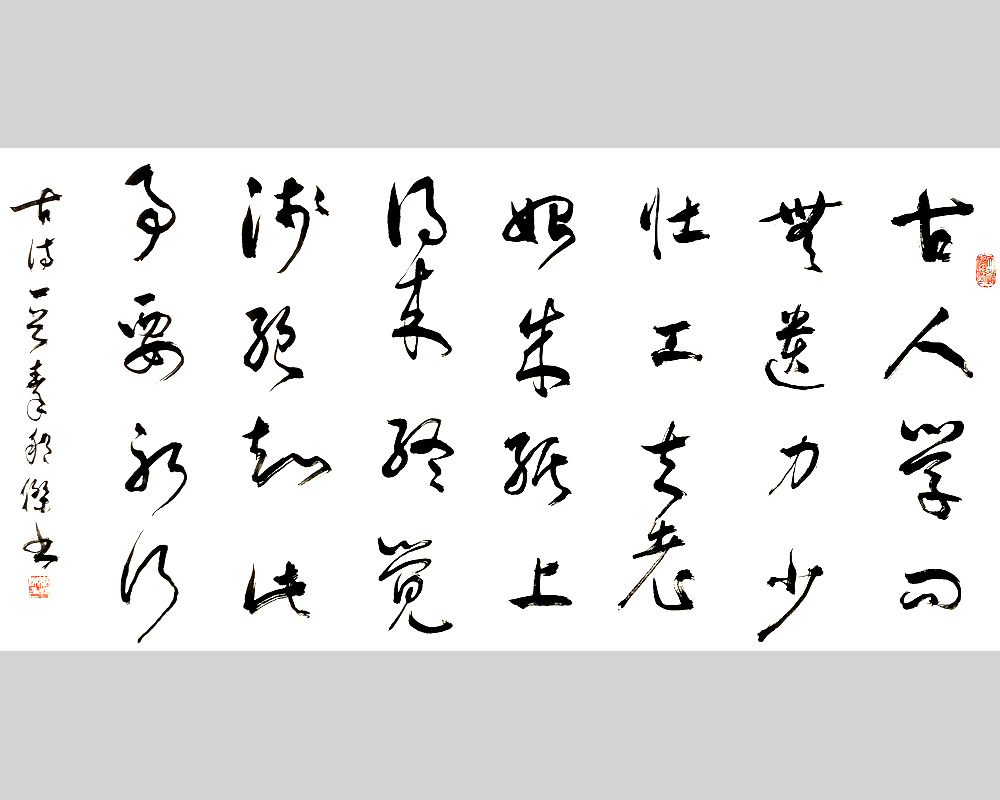 古人学问
無遗力少
壮工夫老
始成纸上
得来终觉
浅绝知此
事要躬行
古诗一首秦傑书